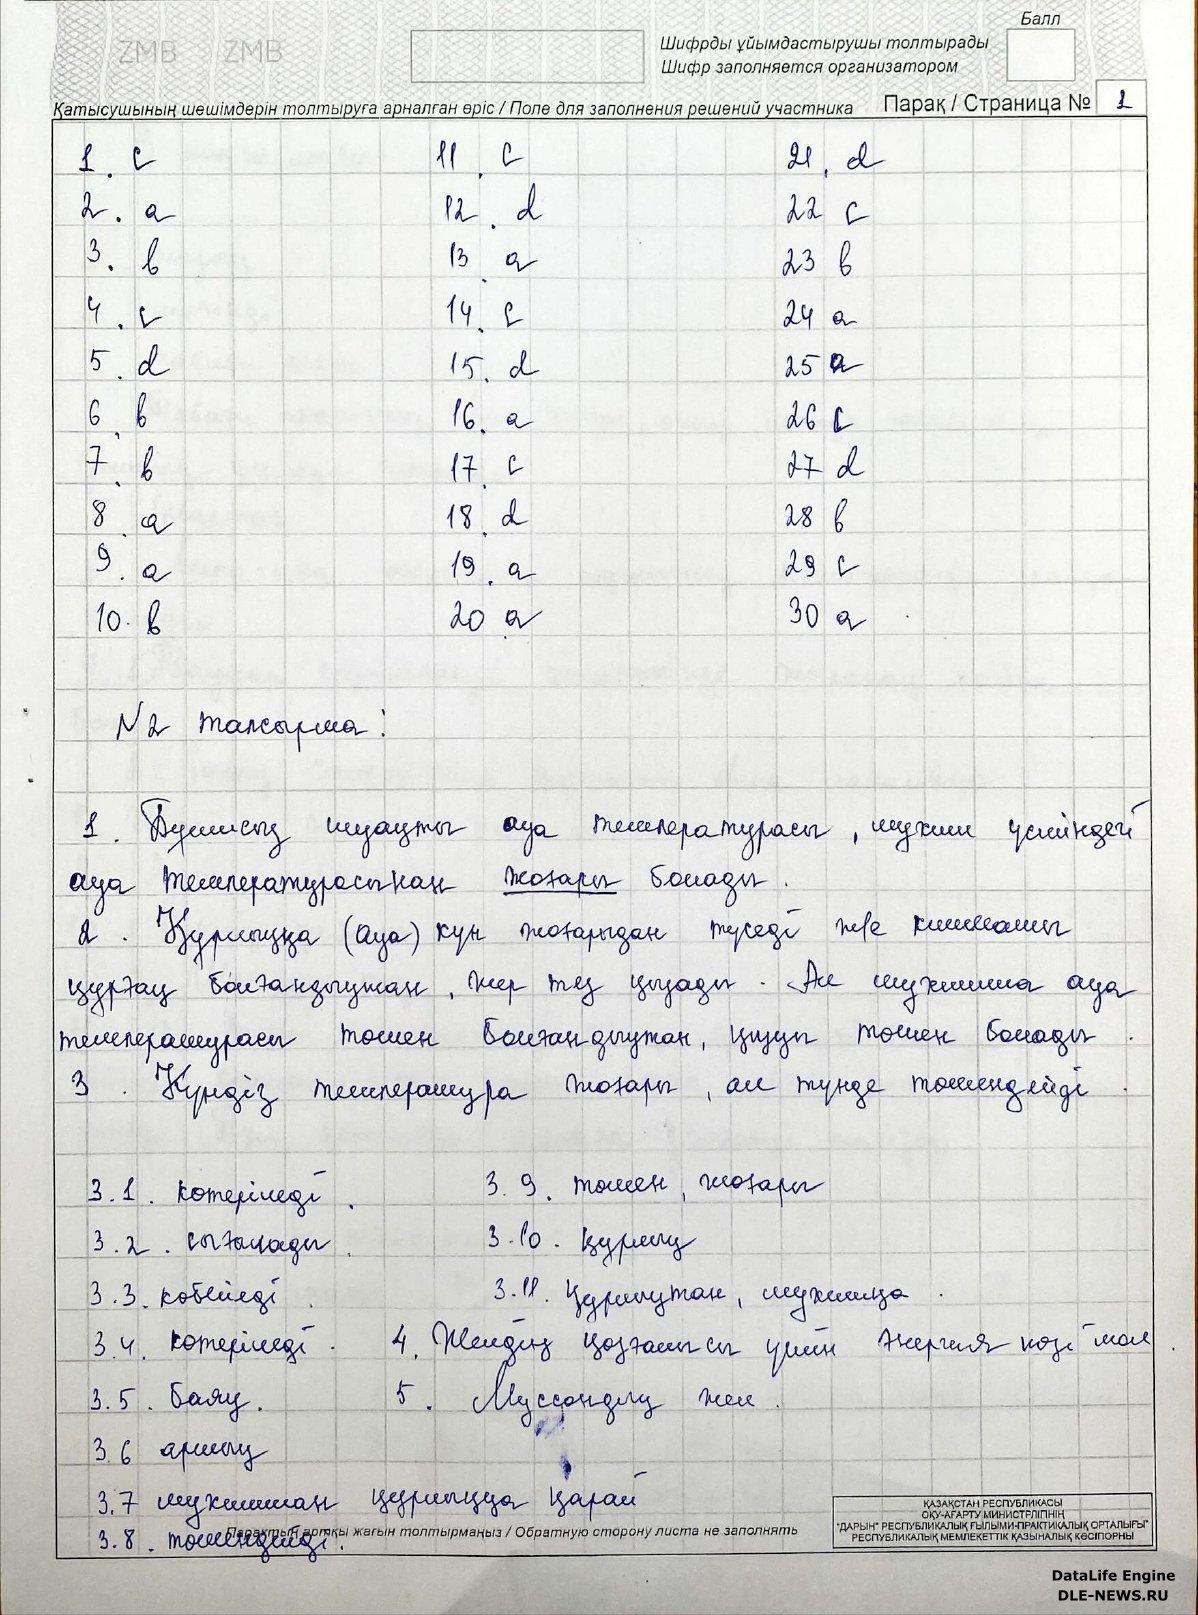 ZMB ZMB
Балл
Шифрды ұйымдастырушы толтырады
Шифр заполняется организатором
Қатысушының шешімдерін толтыруға арналған өріс / Поле для заполнения решений участника
Парақ / Страница № 1
1. c
2. a
3. b
4. c
5. d
6. b
7. b
8. a
9. a
10. b
11. c
12. d
13. a
14. c
15. d
16. a
17. c
18. d
19. a
20 a
21. d
22 c
23 b
24 a
25 a
26 c
27 d
28 b
29 c
30 a
№2 тапсырма:
1. шуақты ауа температурасы, мұхит үстіндегі
ауа температурасынан жоғары болады.
2. Құрлыққа (ауа) күн жоғарыдан түседі және климаты
құрғақ болғандықтан, жер тез қызады. Ал мұхитта ауа
температурасы төмен болғандықтан, қызуы төмен болады.
3. Күндіз температура жоғары, ал түнде төмендейді.
3.1. көтеріледі.
3.2. сығылады.
3.3. көбейеді.
3.4. көтеріледі.
3.5. баяу.
3.6 артық
3.7 мұхиттан құрлыққа қарай
3.8. төмендейді.
3.9. төмен, жоғары
3.10. құрлық
3.11. құрлықтан, мұхитқа.
4. Желдің қозғалысы үшін энергия көзі мол.
5. Муссондық жел.
Парақтың артқы жағын толтырмаңыз / Обратную сторону листа не заполнять
ҚАЗАҚСТАН РЕСПУБЛИКАСЫ
ОҚУ-АҒАРТУ МИНИСТРЛІГІНІҢ
"ДАРЫН" РЕСПУБЛИКАЛЫҚ ҒЫЛЫМИ-ПРАКТИКАЛЫҚ ОРТАЛЫҒЫ"
РЕСПУБЛИКАЛЫҚ МЕМЛЕКЕТТІК ҚАЗЫНАЛЫҚ КӘСІПОРНЫ
DataLife Engine
DLE-NEWS.RU